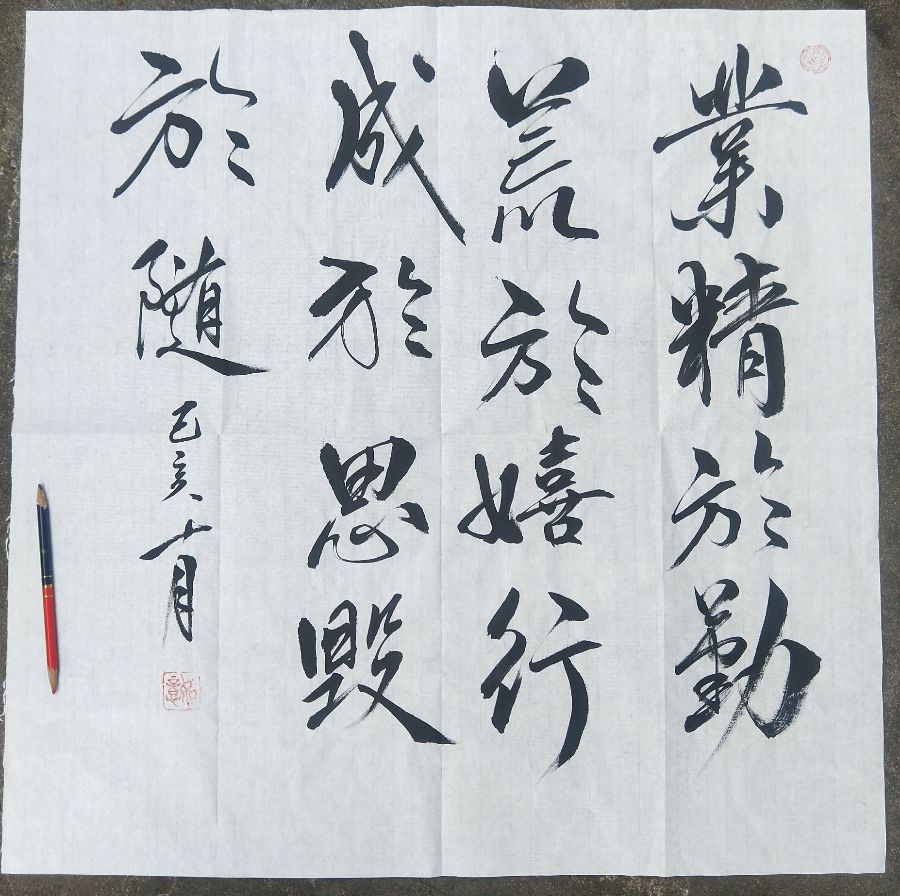 業精於勤
荒於嬉行
成於思毁
於随己亥十月